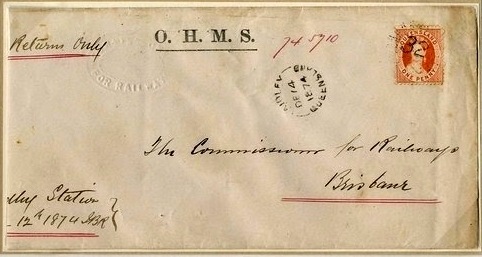 Returns Only
O. H. M. S.
74 5710
FOR RAILWAY
QUEENSLAND
DE 14
1874
QUEENSLAND
ONE PENNY
The Commissioner for Railways
Brisbane
Station
12th 1874